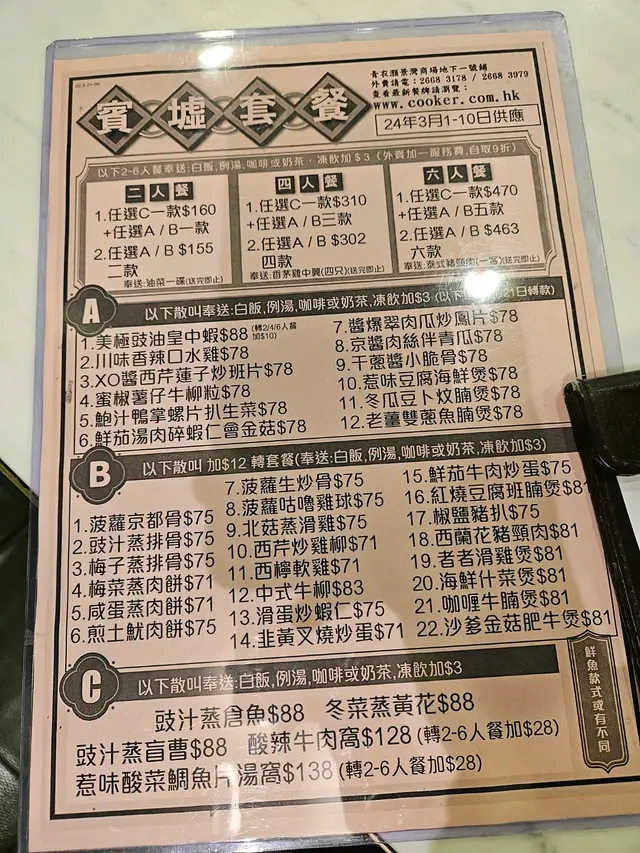 青衣灝景灣商場地下一號鋪
外賣請電：2668 3178 / 2668 3979
查看最新餐牌請瀏覽：
www.cooker.com.hk
賓墟套餐
24年3月1-10日供應
以下2-6人餐奉送:白飯,例湯,咖啡或奶茶，凍飲加$3 (外賣加一服務費,自取9折)
二人餐
1.任選C一款$160
+任選A / B一款
2.任選A / B $155
二款
奉送:油菜一碟(送完即止)
四人餐
1.任選C一款$310
+任選A / B三款
2.任選A / B $302
四款
奉送:香茅雞中翼(四只)(送完即止)
六人餐
1.任選C一款$470
+任選A / B五款
2.任選A / B $463
六款
奉送:泰式豬頸肉(一客)(送完即止)
A
以下散叫奉送:白飯,例湯,咖啡或奶茶,凍飲加$3 (以下
日轉款)
1.美極豉油皇中蝦$88 (轉2/4/6人餐加$10)
2.川味香辣口水雞$78
3.XO醬西芹蓮子炒班片$78
4.蜜椒薯仔牛柳粒$78
5.鮑汁鴨掌螺片扒生菜$78
6.鮮茄湯肉碎蝦仁會金菇$78
7.醬爆翠肉瓜炒鳳片$78
8.京醬肉絲伴青瓜$78
9.干蔥醬小脆骨$78
10.惹味豆腐海鮮煲$78
11.冬瓜豆卜炆腩煲$78
12.老薑雙蔥魚腩煲$78
B
以下散叫 加$12 轉套餐(奉送:白飯,例湯,咖啡或奶茶,凍飲加$3)
1.菠蘿京都骨$75
2.豉汁蒸排骨$75
3.梅子蒸排骨$75
4.梅菜蒸肉餅$71
5.咸蛋蒸肉餅$71
6.煎土魷肉餅$75
7.菠蘿生炒骨$75
8.菠蘿咕嚕雞球$75
9.北菇蒸滑雞$75
10.西芹炒雞柳$71
11.西檸軟雞$71
12.中式牛柳$83
13.滑蛋炒蝦仁$75
14.韭黃叉燒炒蛋$71
15.鮮茄牛肉炒蛋$75
16.紅燒豆腐班腩煲$81
17.椒鹽豬扒$75
18.西蘭花豬頸肉$81
19.者者滑雞煲$81
20.海鮮什菜煲$81
21.咖喱牛腩煲$81
22.沙爹金菇肥牛煲$81
C
以下散叫奉送:白飯,例湯,咖啡或奶茶,凍飲加$3
豉汁蒸倉魚$88 冬菜蒸黃花$88
豉汁蒸盲曹$88 酸辣牛肉窩$128 (轉2-6人餐加$28)
惹味酸菜鯛魚片湯窩$138 (轉2-6人餐加$28)
鮮魚款式或有不同